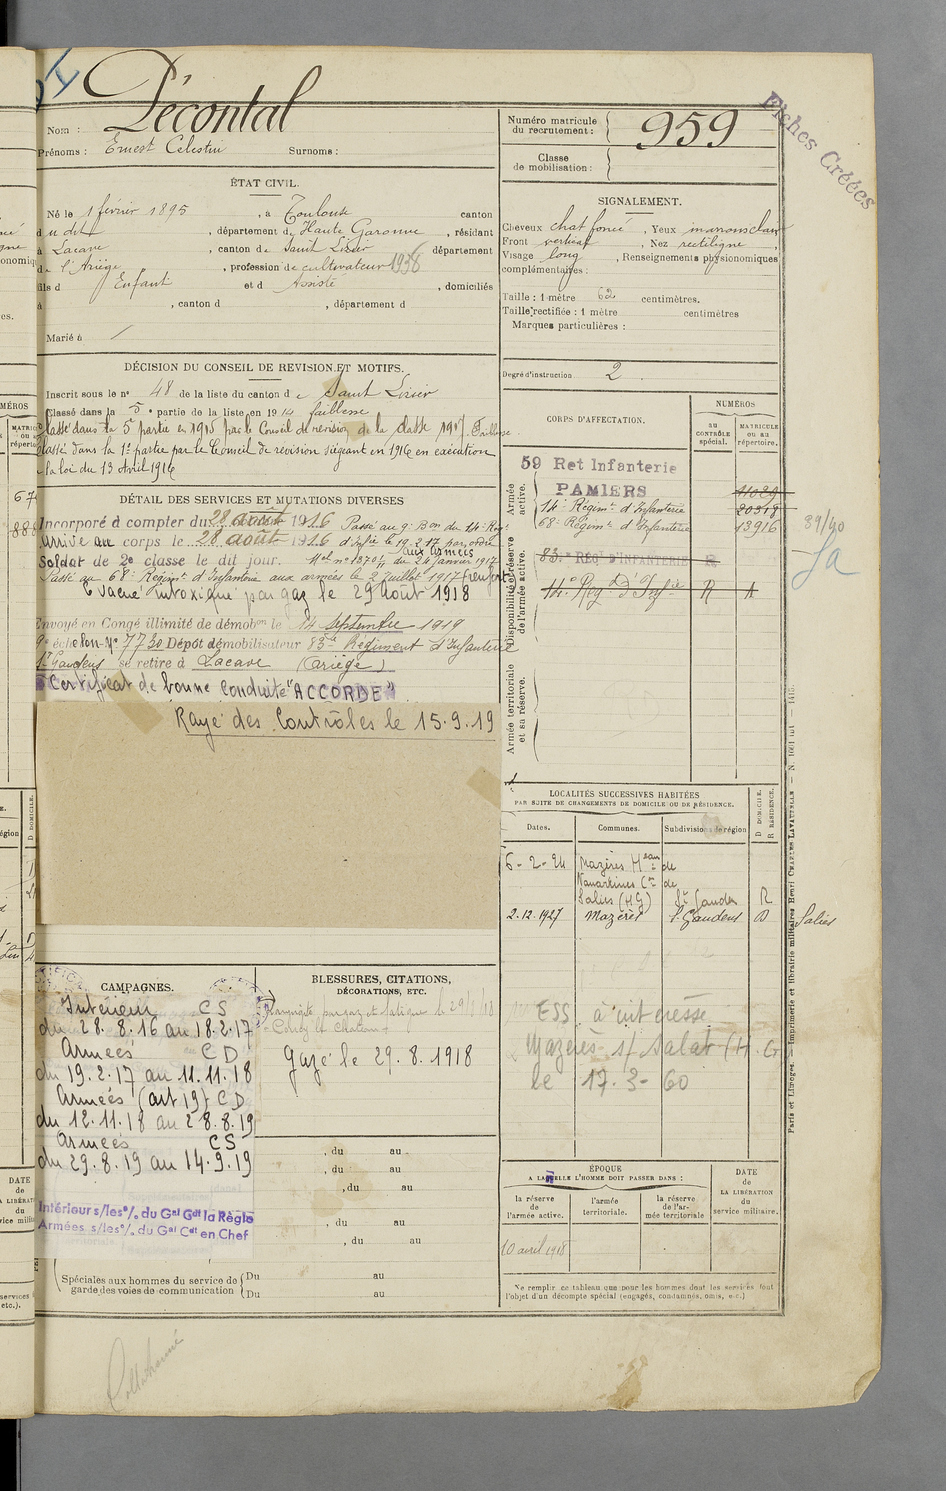 Fiches Créées
Nom : Décontal
Prénoms : Ernest Célestin Surnoms :
Numéro matricule
du recrutement : 959
Classe
de mobilisation :
ÉTAT CIVIL.
Né le 1 février 1895, à Toulouse canton
dudit, département de Haute Garonne, résidant
à Lacave, canton de Saint Lizier département
de l'Ariège, profession de cultivateur 1936
fils d Enfant et d Assisté, domiciliés
à , canton d , département d
Marié à
SIGNALEMENT.
Cheveux chat foncé, Yeux marrons clair
Front vertical, Nez rectiligne
Visage long, Renseignements physionomiques
complémentaires :
Taille : 1 mètre 62 centimètres.
Taille rectifiée : 1 mètre centimètres
Marques particulières :
Degré d'instruction 2
DÉCISION DU CONSEIL DE REVISION ET MOTIFS.
Inscrit sous le n° 48 de la liste du canton de Saint Lizier
Classé dans la 5e partie de la liste en 1914 faiblesse
Classé dans la 5 partie en 1915 par le Conseil de révision de la classe 1917. Faiblesse
Classé dans la 1e partie par le Conseil de revision siégeant en 1916 en exécution
la loi du 13 Avril 1916
DÉTAIL DES SERVICES ET MUTATIONS DIVERSES
Incorporé à compter du 28 août 1916 Passé au 9e Bon du 14e Régt
Arrivé au corps le 28 août 1916 d'Inf.ie le 19.2.17 par ordre
aux armées
Soldat de 2e classe le dit jour. Mel n° 1370 du 24 janvier 1917
Passé au 68e Régimt d'Infanterie aux armées le 2 juillet 1917 (renfort)
Evacué intoxiqué par gaz le 29 Août 1918
Envoyé en Congé illimité de démobon le 14 Septembre 1919
9e échelon N° 7730 Dépôt démobilisateur 83e Régiment d'Infanterie
St Gaudens se retire à Lacave (Ariège)
Certificat de bonne conduite "ACCORDÉ"
Rayé des Contrôles le 15.9.19
CORPS D'AFFECTATION.
NUMÉROS
AU
CONTRÔLE
spécial.
MATRICULE
ou au
répertoire.
Armée
active.
59 Ret Infanterie
PAMIERS 11029
14e Régimt d'Infanterie 20319
68e Régimt d'Infanterie 13916
Disponibilité et réserve
de l'armée active.
83e REG D'INFANTERIE R
14e Régt d'Infie R A
Armée territoriale
et sa réserve.
39/40
LOCALITÉS SUCCESSIVES HABITÉES
PAR SUITE DE CHANGEMENTS DE DOMICILE OU DE RÉSIDENCE.
Dates. Communes. Subdivision de région D DOMICILE. R RÉSIDENCE.
6-2-24 Mazères Heau de
Cne de
Salies (HG) St Gaudens R
2.12.1927 Mazères St Gaudens D Salies
ESS à intéressé
Mazères s/ Salat (H.G
le 17.3-60
CAMPAGNES.
Intérieur CS
du 28.8.16 au 18.2.17
Armées CD
du 19.2.17 au 11.11.18
Armées (art 19) CD
du 12.11.18 au 28.8.19
Armées CS
du 29.8.19 au 14.9.19
Intérieur s/les % du Gal Gdt la Règle
Armées s/les % du Gal Cdt en Chef
BLESSURES, CITATIONS,
DÉCORATIONS, ETC.
par gaz et fatigue le 29/8/18
Gazé le 29.8.1918
, du au
, du au
, du au
, du au
, du au
Spéciales aux hommes du service de
garde des voies de communication
Du au
Du au
ÉPOQUE
A LAQUELLE L'HOMME DOIT PASSER DANS :
la réserve
de l'armée active.
l'armée
territoriale.
la réserve
de l'ar-
mée territoriale
DATE
de
LA LIBÉRATION
du
service militaire.
10 avril 1918
Ne remplir ce tableau que pour les hommes dont les services font
l'objet d'un décompte spécial (engagés, condamnés, omis, etc.)
Paris et Limoges. — Imprimerie et librairie militaires Henri CHARLES LAVAUZELLE